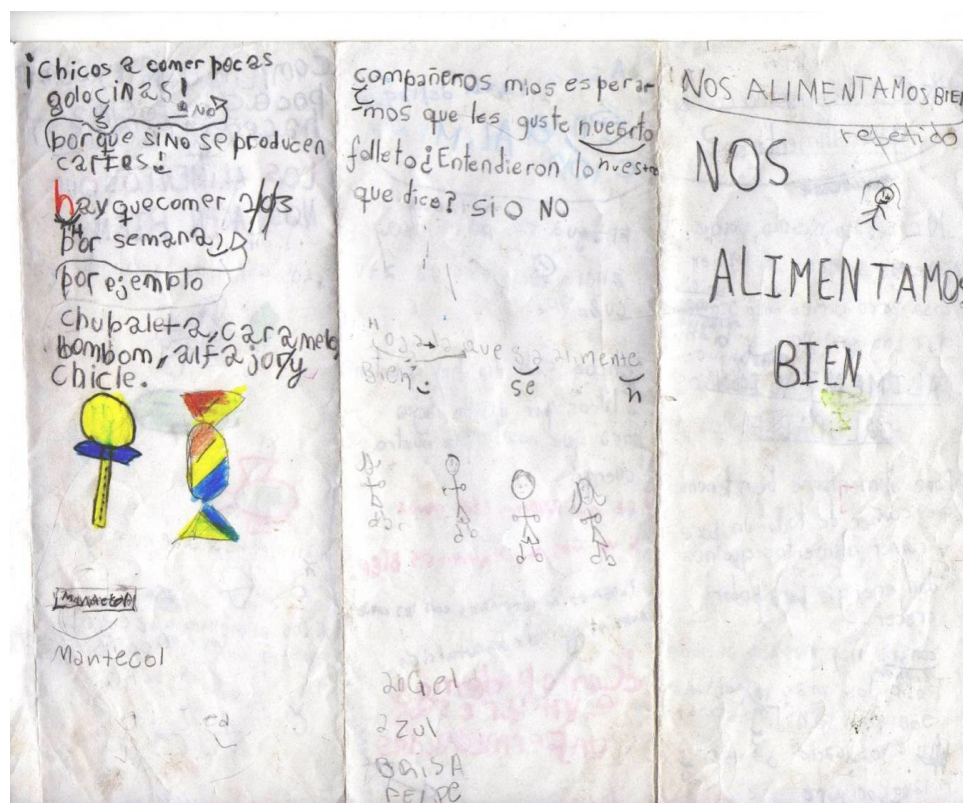 ¡Chicos a comer pocas
golocinas!
NO
porque sino se producen
caries!
hay que comer 2/03
por semana,
por ejemplo
chupaleta, caramelo,
bombom, alfajor y
Chicle.
Mantecol
Mantecol
ca
Compañeros mios espera
mos que les guste nuesrto
folleto ¿Entendieron lo nuestro
que dice? SI O NO
H
ojala que sia alimente
Bien
se
n
angel
azul
BRISA
FELPE
NOS ALIMENTAMOS BIEN
repetido
NOS
ALIMENTAMOS
BIEN